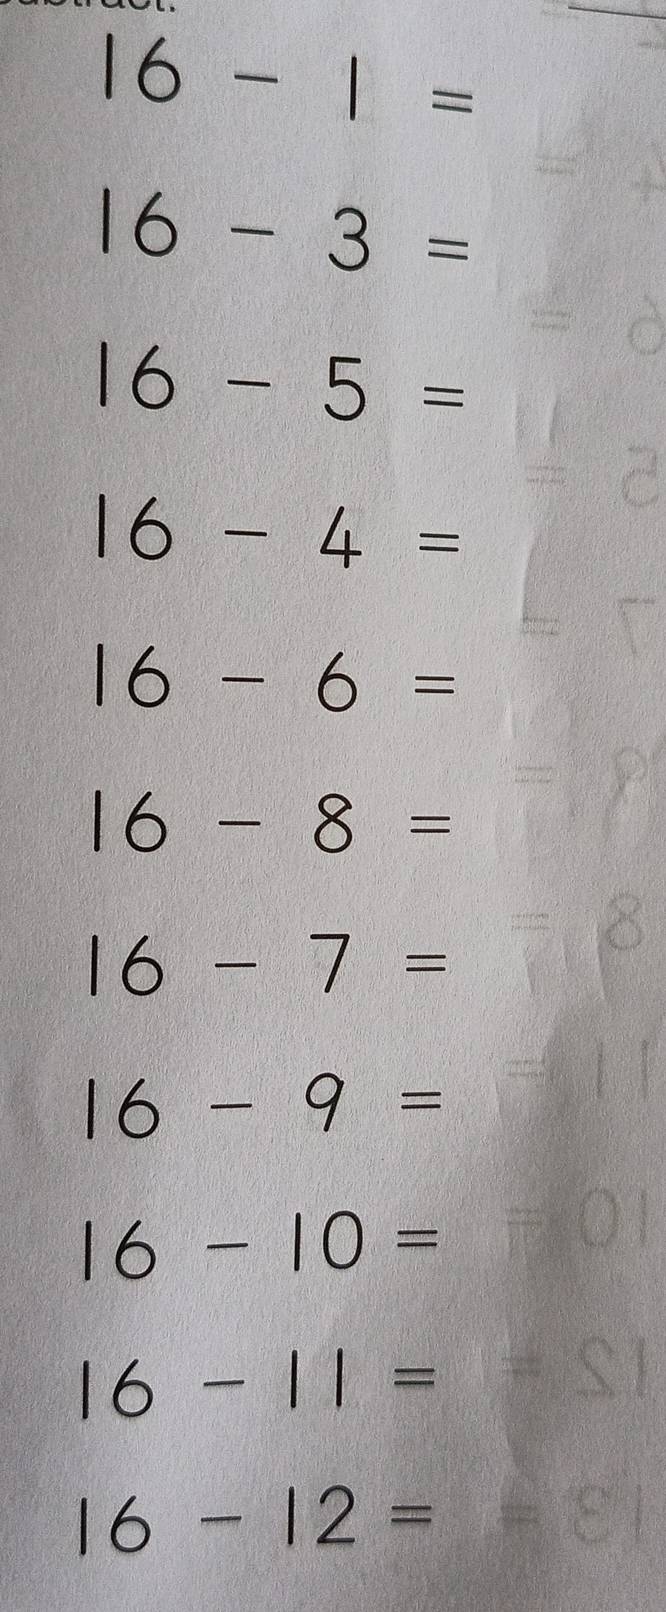 16 - 1 =
16 - 3 =
16 - 5 =
16 - 4 =
16 - 6 =
16 - 8 =
16 - 7 =
16 - 9 =
16 - 10 =
16 - 11 =
16 - 12 =